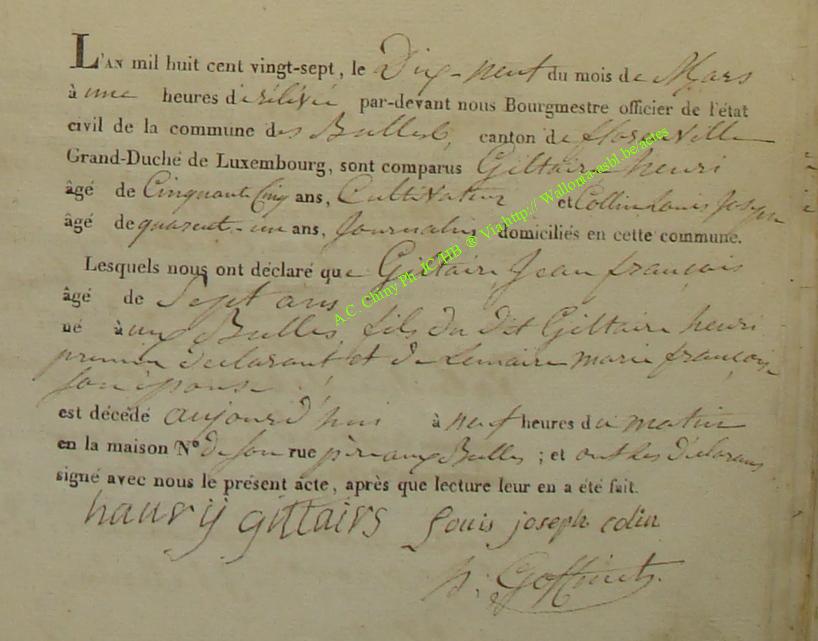 L'AN mil huit cent vingt-sept, le Dix-neuf du mois de Mars
à une heures de rélévée par-devant nous Bourgmestre officier de l'état
civil de la commune des Bulles, canton de florenville
Grand-Duché de Luxembourg, sont comparus Giltaire henri
âgé de Cinquante Cinq ans, Cultivateur et Collin Louis Joseph
âgé de quarent-un ans, Journalier domiciliés en cette commune.
Lesquels nous ont déclaré que Giltaire Jean françois
âgé de Sept ans
né à aux Bulles, fils du dit Giltaire henri
premier declarant et de Lemaire marie françoise
son épouse
est décédé aujourd'hui à neuf heures du matin
en la maison N° de son rue père aux Bulles ; et ont les déclarans
signé avec nous le présent acte, après que lecture leur en a été fait.
haurij giltairs Louis joseph colin
Goffinet
A.C. Chiny Ph JC/HB ® Via http:// Wallonia-asbl.be/actes